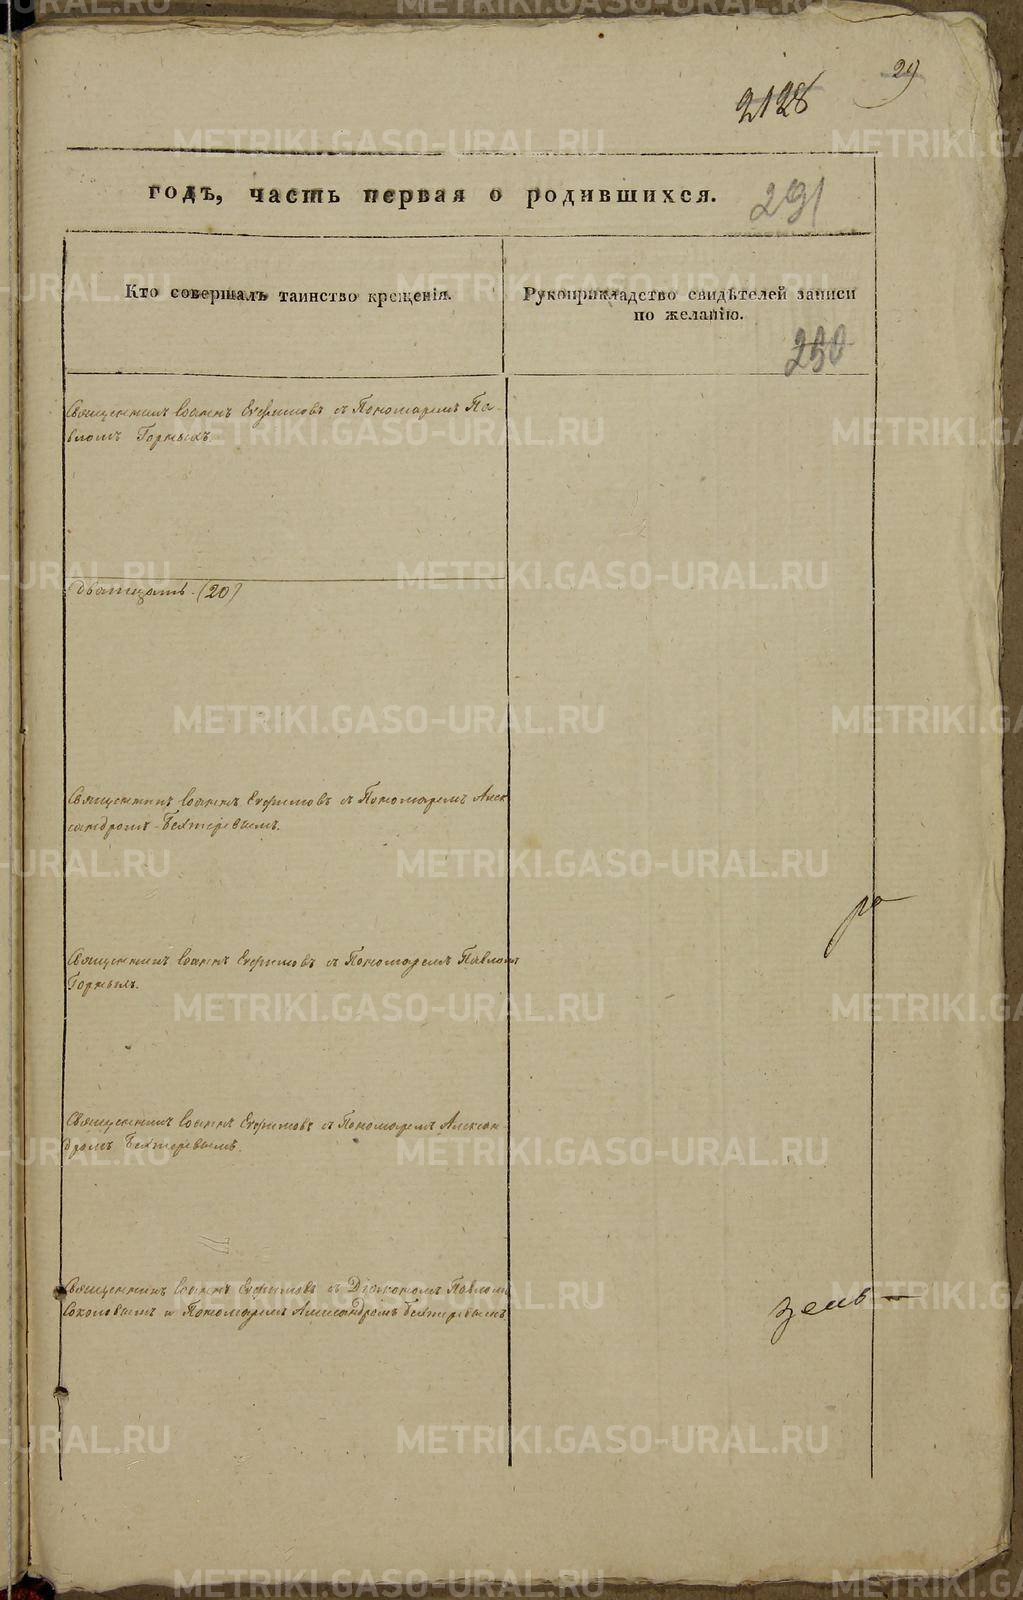 29
2128
годъ, часть первая о родившихся.
291
Кто совершалъ таинство крещенія.
Рукоприкладство свидѣтелей записи
по желанію.
290
Священникъ Іоаннъ Ефимовъ съ Пономаремъ Па-
вломъ Горныхъ.
Дватцать (20)
Священникъ Іоаннъ Ефимовъ съ Пономаремъ Алек
сандромъ Бехтеревымъ.
Священникъ Іоаннъ Ефимовъ съ Пономаремъ Павломъ
Горнымъ.
Священникъ Іоаннъ Ефимовъ съ Пономаремъ Алексан-
дромъ Бехтеревымъ.
Священникъ Іоаннъ Ефимовъ съ Діакономъ Павломъ
Соколовымъ и Пономаремъ Александромъ Бехтеревымъ
METRIKI.GASO-URAL.RU